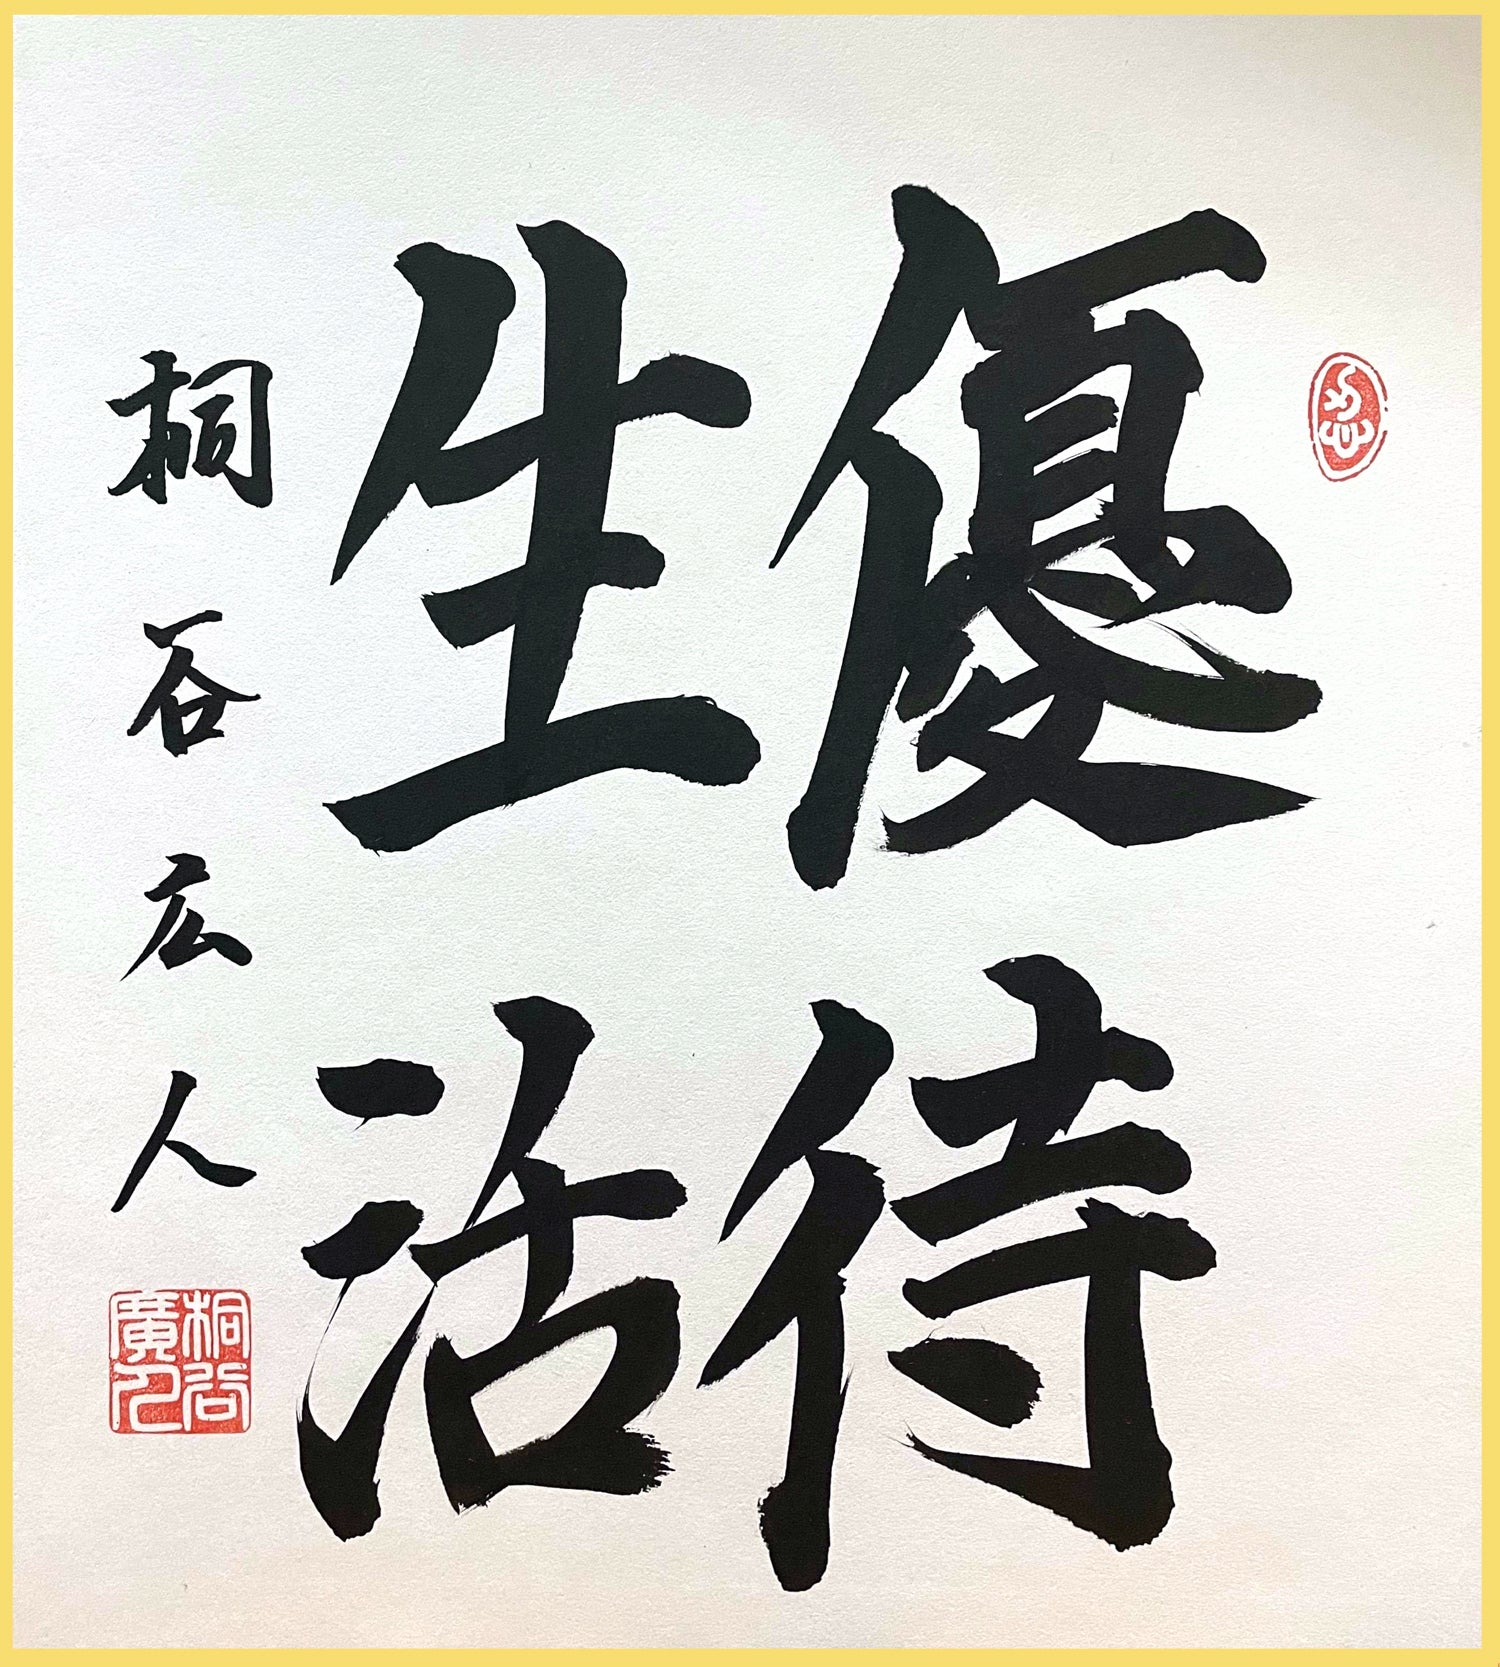 優待
生活
桐谷広人
桐谷
廣人